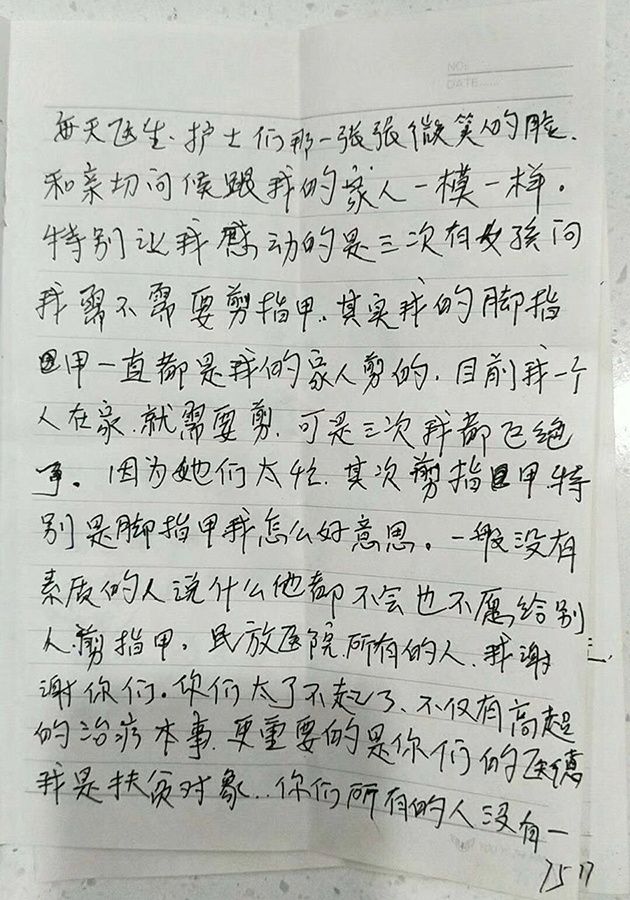 NO:
DATE
每天医生、护士们那一张张微笑的脸、
和亲切问候跟我的家人一模一样。
特别让我感动的是三次有女孩问
我需不需要剪指甲、其实我的脚指
甲一直都是我的家人剪的、目前我一个
人在家、就需要剪、可是三次我都已绝
了。因为她们太忙、其次剪指甲、特
别是脚指甲我怎么好意思。一般没有
素质的人说什么他都不会也不愿给别
人剪指甲。民放医院所有的人、我谢
谢你们。你们太了不起了、不仅有高超
的治疗本事、更重要的是你们的医德
我是扶贫对象..你们所有的人没有一